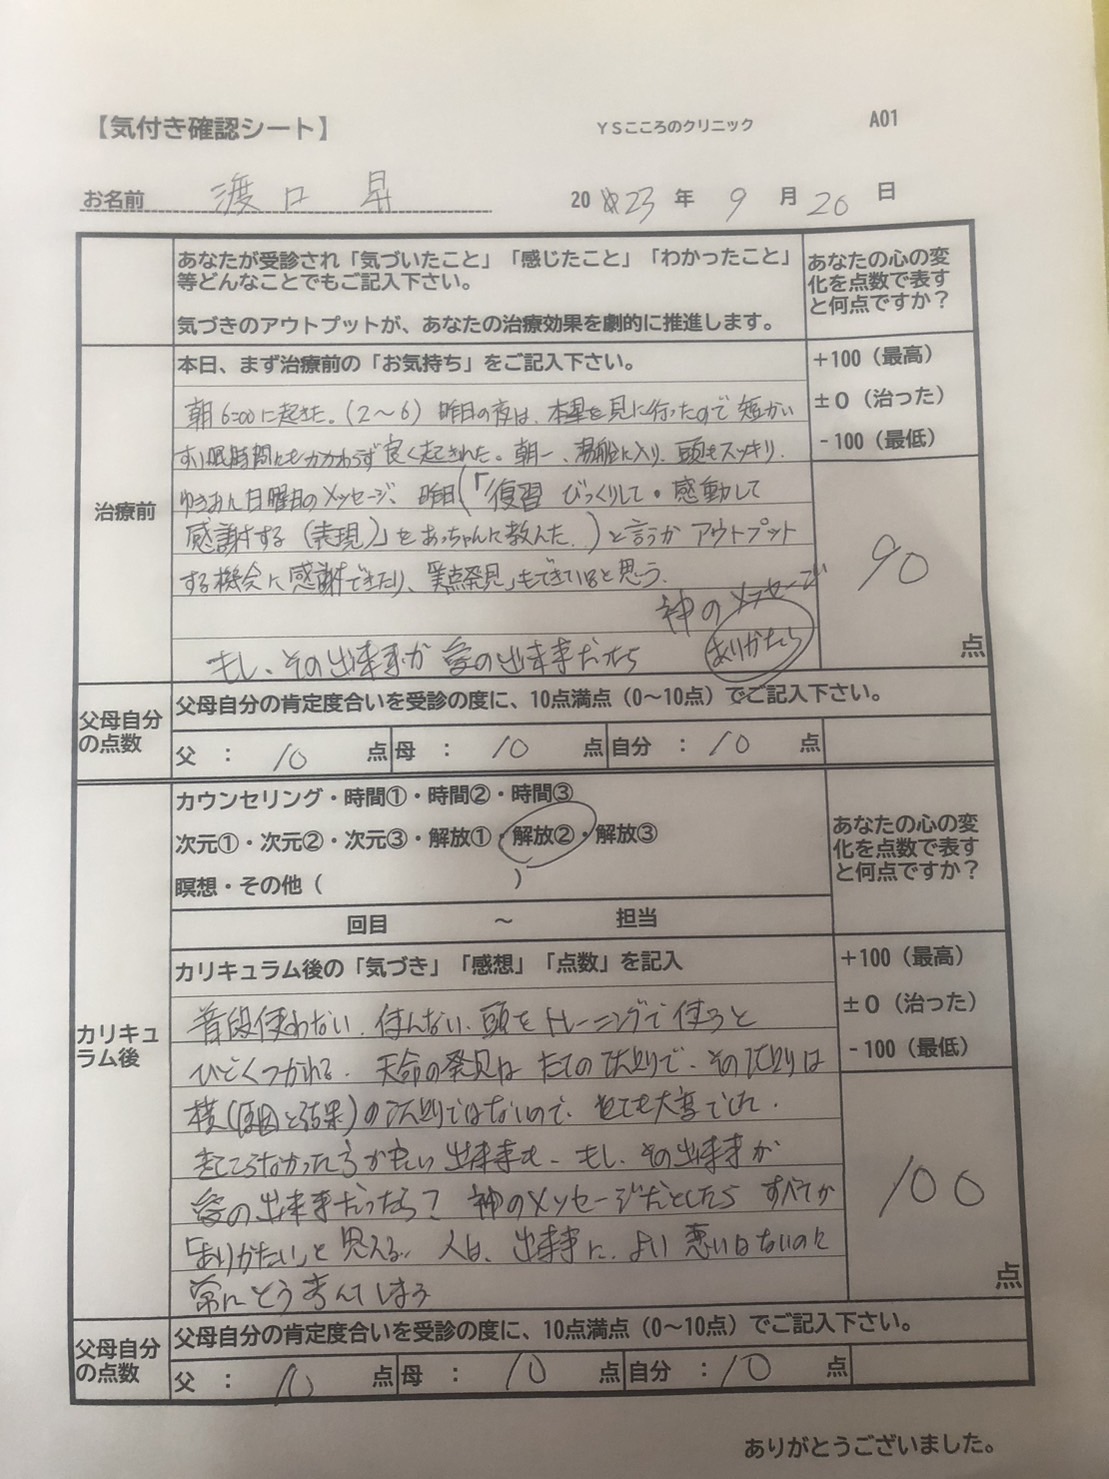 【気付き確認シート】
YSこころのクリニック
A01
お名前 渡口 昇
2023年 9月 20日
あなたが受診され「気づいたこと」「感じたこと」「わかったこと」
等どんなことでもご記入下さい。
気づきのアウトプットが、あなたの治療効果を劇的に推進します。
あなたの心の変
化を点数で表す
と何点ですか？
治療前
本日、まず治療前の「お気持ち」をご記入下さい。
朝6:00に起きた。(2～6) 昨日の夜は、を見に行ったので短かい
すい眠時間にもかかわらず良く起きれた。朝一、湯船に入り、頭もスッキリ.
日曜日のメッセージ、昨日(「復習 びっくりして・感動して
感謝する(表現)」をあっちゃんに教えた.)と言うか アウトプット
する機会に感謝できたり、「笑点発見」もできていると思う.
神のメッセージ
もし、その出来事が 愛の出来事だったら ありがたら
+100（最高）
±0（治った）
-100（最低）
90
点
父母自分
の点数
父母自分の肯定度合いを受診の度に、10点満点（0～10点）でご記入下さい。
父 ： 10 点 母 ： 10 点 自分 ： 10 点
カリキュ
ラム後
カウンセリング・時間①・時間②・時間③
次元①・次元②・次元③・解放①・解放②・解放③
瞑想・その他（ ）
回目 ～ 担当
あなたの心の変
化を点数で表す
と何点ですか？
カリキュラム後の「気づき」「感想」「点数」を記入
普段使わない、使えない、頭をトレーニングで使うと
ひどくつかれる. 天命の発見は たての で、その は
横(原因と結果)の ではないので、とても大変でした.
起こらなかった方が良い 出来事も、もし、その出来事が
愛の出来事だったら？ 神のメッセージだとしたら すべてが
「ありがたい」と思える。人は、出来事に、よい 悪いはないのに
常にどう考えてしまう
+100（最高）
±0（治った）
-100（最低）
100
点
父母自分
の点数
父母自分の肯定度合いを受診の度に、10点満点（0～10点）でご記入下さい。
父 ： 10 点 母 ： 10 点 自分 ： 10 点
ありがとうございました。